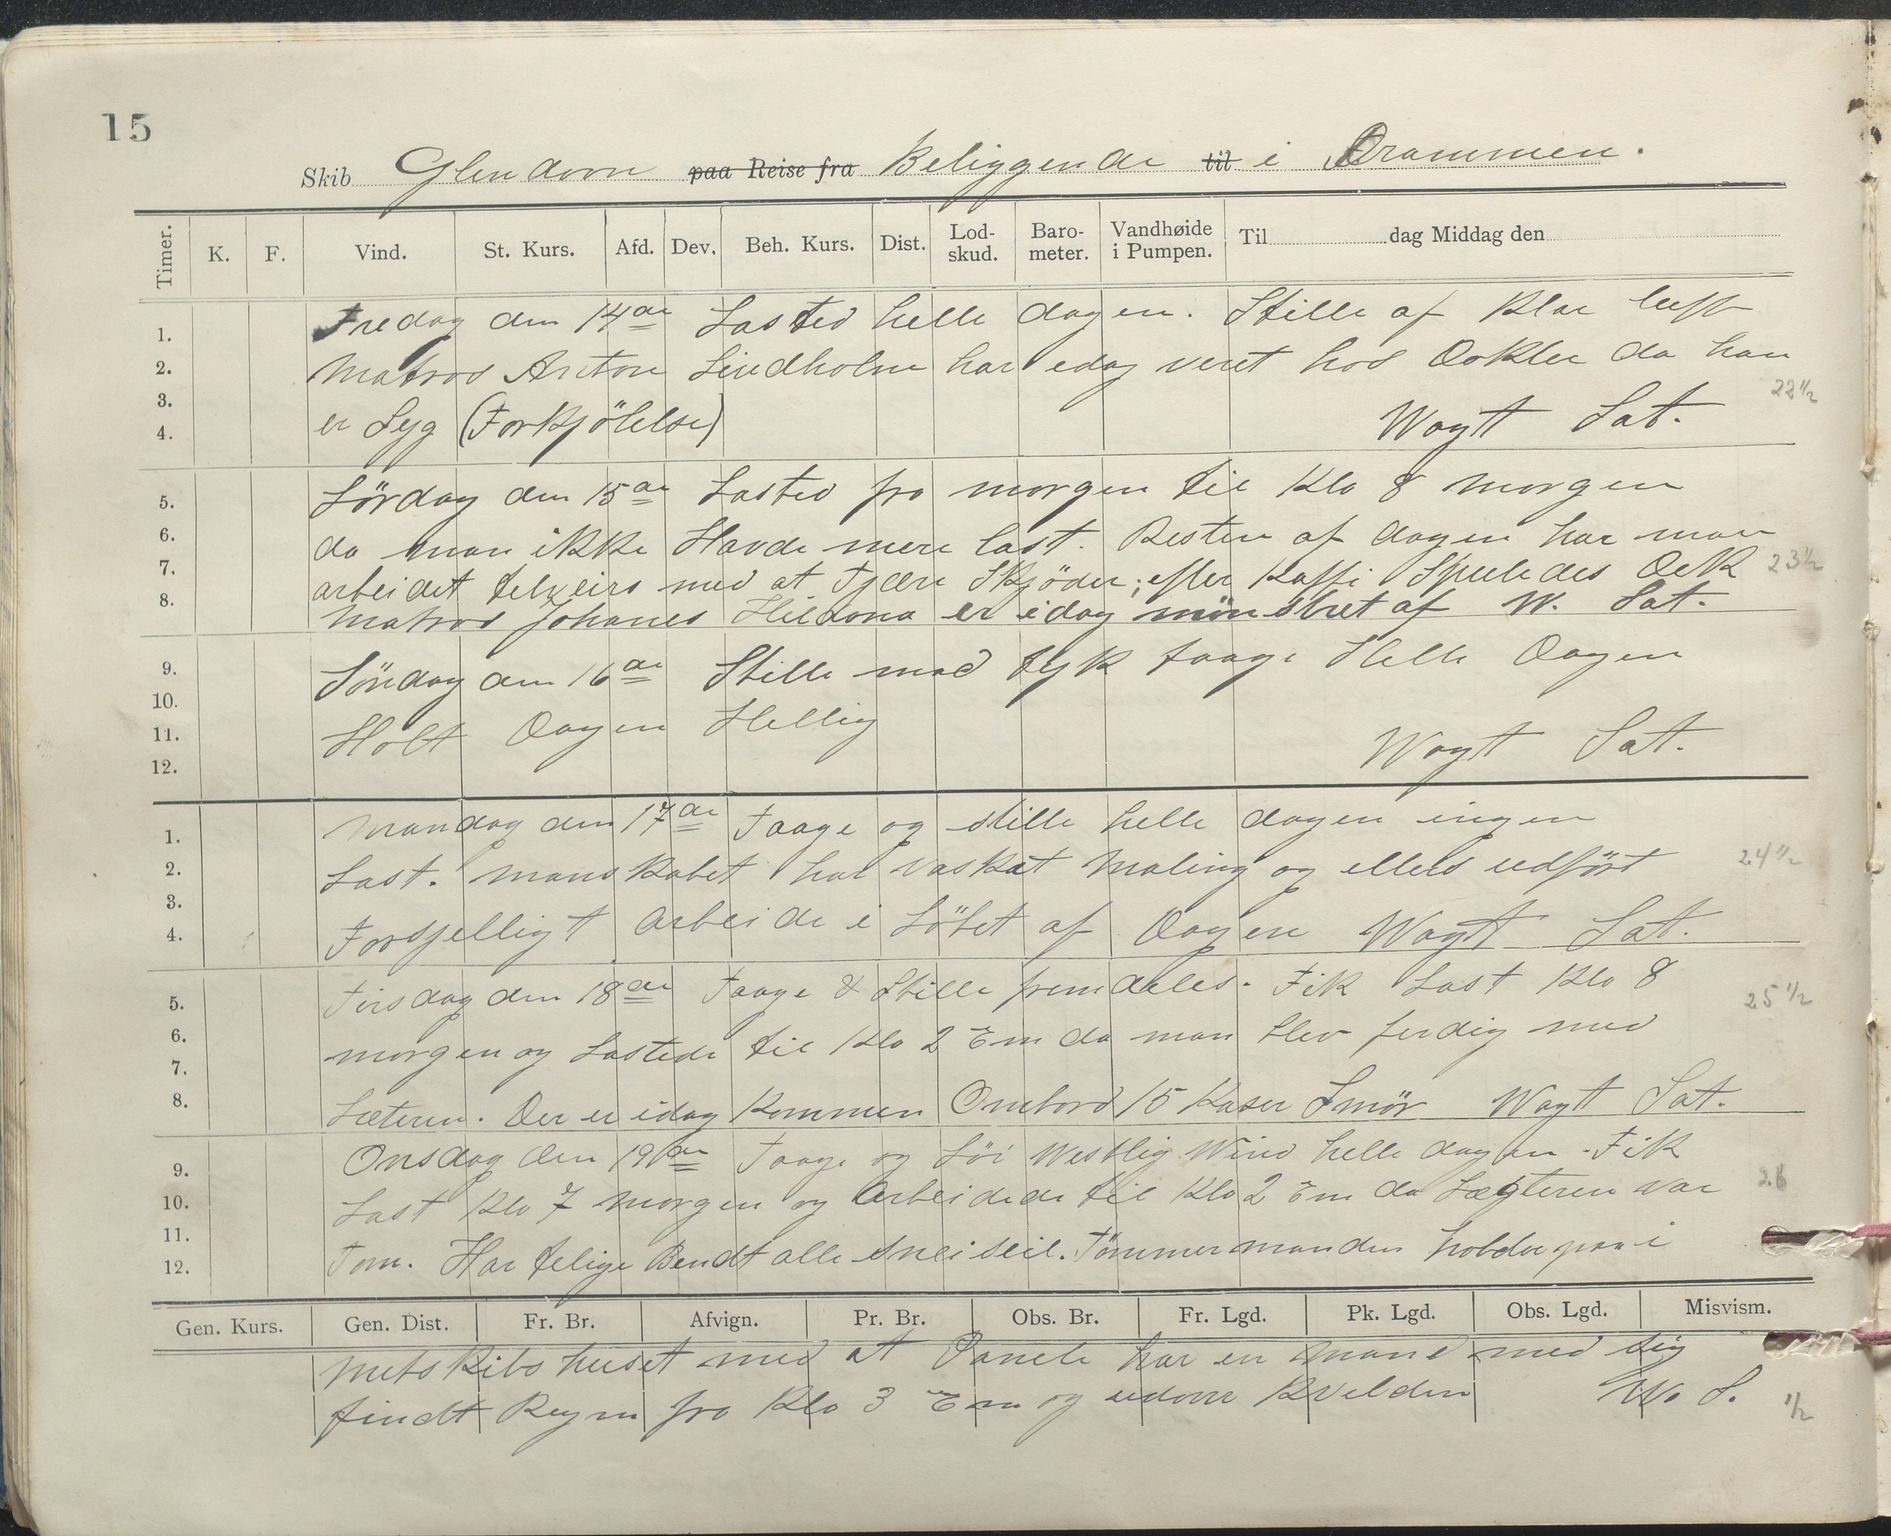 15
Skib Glendovn paa Reise fra Beliggende til i Drammen.
Timer. K. F. Vind. St. Kurs. Afd. Dev. Beh. Kurs. Dist. Lod-skud. Baro-meter. Vandhøide i Pumpen. Til dag Middag den
1. Fredag den 14de Lasted helle dagen. Stille af klar luft
2. Matros Anton Lindholm har idag veret hos Dokter da han
3. 22 1/2
4. er Syg (Forkjölelse) Wagt Sat.
5. Lördag den 15de Lasted fra morgen til Klo 8 morgen
6. da man ikke Havde mere last. Resten af dagen har man
7. arbeidet telveirs med at Tjære Skjöder; efter Kaffi Spuledes Dek 23 1/2
8. Matros Johanes er idag mönstret af W. Sat.
9. Söndag den 16de Stille med tyk taage Helle Dagen
10.
11. Holt Dagen Hellig
12. Wagt Sat.
1. Mandag den 17de Taage og stille helle dagen ingen
2. Last. Manskabet har vasket Maling og ellers udfört 24 1/2
3.
4. Forsjelligt arbeide i Löbet af Dagen Wagt Sat.
5. Tirsdag den 18de Taage & Stille fremdeles. Fik Last Klo 8 25 1/2
6. morgen og Lastede til Klo 2 Em da man blev ferdig med
7.
8. Læteren. Der er idag Kommen Ombord 15 Kaser Smör Wagt Sat.
9. Onsdag den 19de Taage og Löi Westlig Wind helle dagen. Fik
10. Last Klo 7 morgen og Arbeidede til Klo 2 Em da Lægteren var 26
11.
12. Tom. Har telige Bendt alle sneiseil. Tömmermanden holder paa i
Gen. Kurs. Gen. Dist. Fr. Br. Afvign. Pr. Br. Obs. Br. Fr. Lgd. Pk. Lgd. Obs. Lgd. Misvism.
Metskibs huset med at Panele har en Mand med sig
findt Regn fra Klo 3 Em og udover Kvelden W. S. 1/2